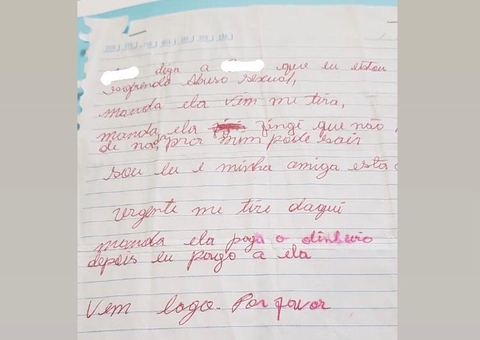 diga a que eu estou
sofrendo abuso sexual,
manda ela vim me tira,
manda ela fingi que não
de nos, pior nem pode sair
sou eu e minha amiga esta
urgente me tire daqui
manda ela paga o dinheiro
depois eu pago a ela
Vem logo. Por favor